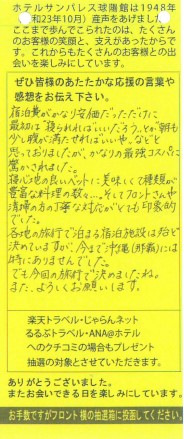 ホテルサンパレス球陽館は1948年
(昭和23年10月)産声をあげました。
ここまで歩んでこられたのは、たくさん
のお客様の笑顔と、支えがあったからで
す。これからもたくさんのお客様との出
会いを楽しみにしています。
ぜひ皆様のあたたかな応援の言葉や
感想をお伝え下さい。
宿泊費がかなり安価だっただけに
最初は寝られればいいだろう。とか朝も
少し腹が満たせればいいや。などと
思っておりましたが、かなりの最強コスパに
驚かされました。
寝心地の良いベットに美味しくて種類が
豊富な料理の数々…そしてフロントさんや
清掃の方の丁寧な対応がとても印象的
でした。
各地の旅行で泊まる宿泊施設はほど
決めていますが、今まで沖縄(那覇)には
特にありませんでした。
でも今回の旅行で決めましたね。
また、よろしくお願いします。
楽天トラベル・じゃらんネット
るるぶトラベル・ANA@ホテル
へのクチコミの場合もプレゼント
抽選の対象とさせていただきます。
ありがとうございました。
またお会いできる日を楽しみにしています。
お手数ですがフロント横の抽選箱に投函してください。